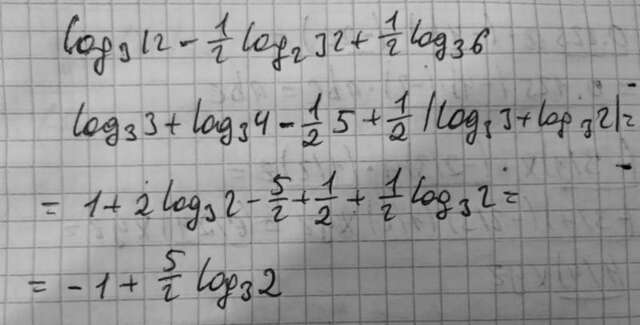 log₃12 - 1/2 log₂32 + 1/2 log₃6
log₃3 + log₃4 - 1/2 5 + 1/2 (log₃3 + log₃2) =
= 1 + 2 log₃2 - 5/2 + 1/2 + 1/2 log₃2 =
= -1 + 5/2 log₃2